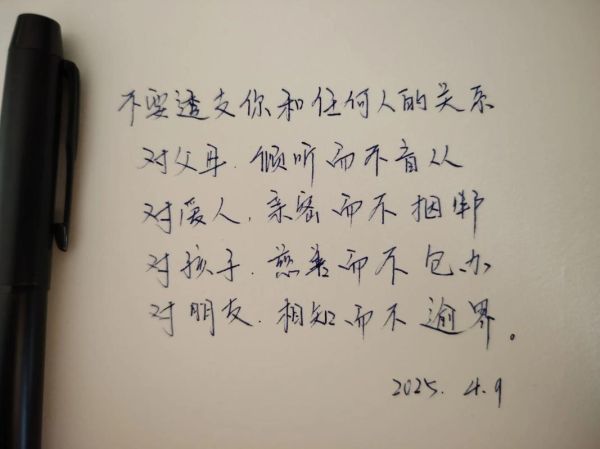 不要透支你和任何人的关系
对父母.倾听而不盲从
对爱人.亲密而不捆绑
对孩子.慈善而不包办
对朋友.相知而不逾界。
2025.4.9